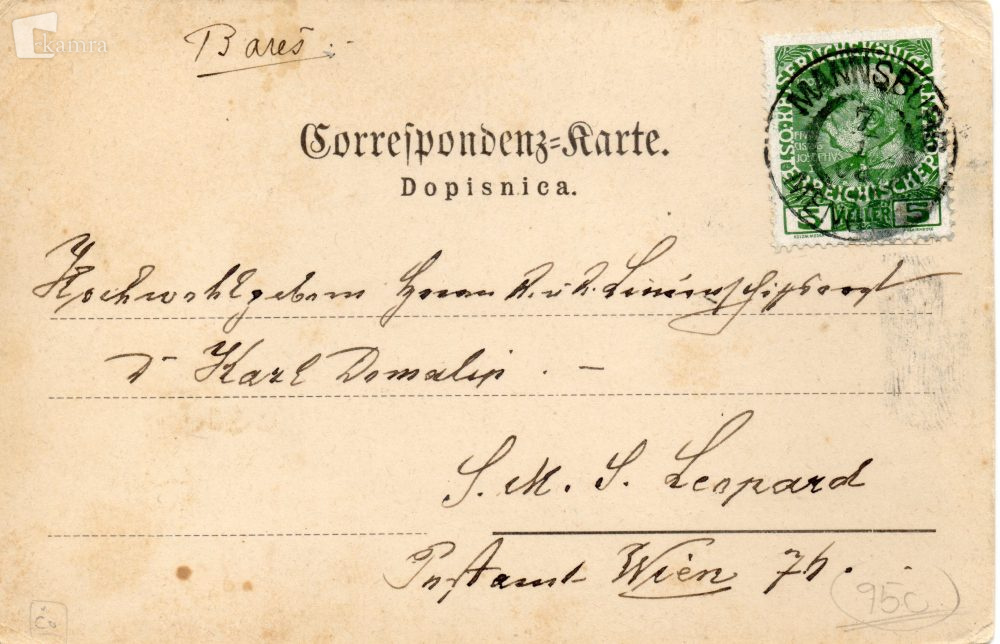 kamra
Bareš
Correspondenz-Karte.
Dopisnica.
MANNSBURG
MENGEŠ
5 HELLER 5
Hochwohlgeborn Herrn K. u. K. Linienschiffsarzt
Dr Karl Domalip. -
S. M. S. Leopard
Postamt Wien 76.
95c